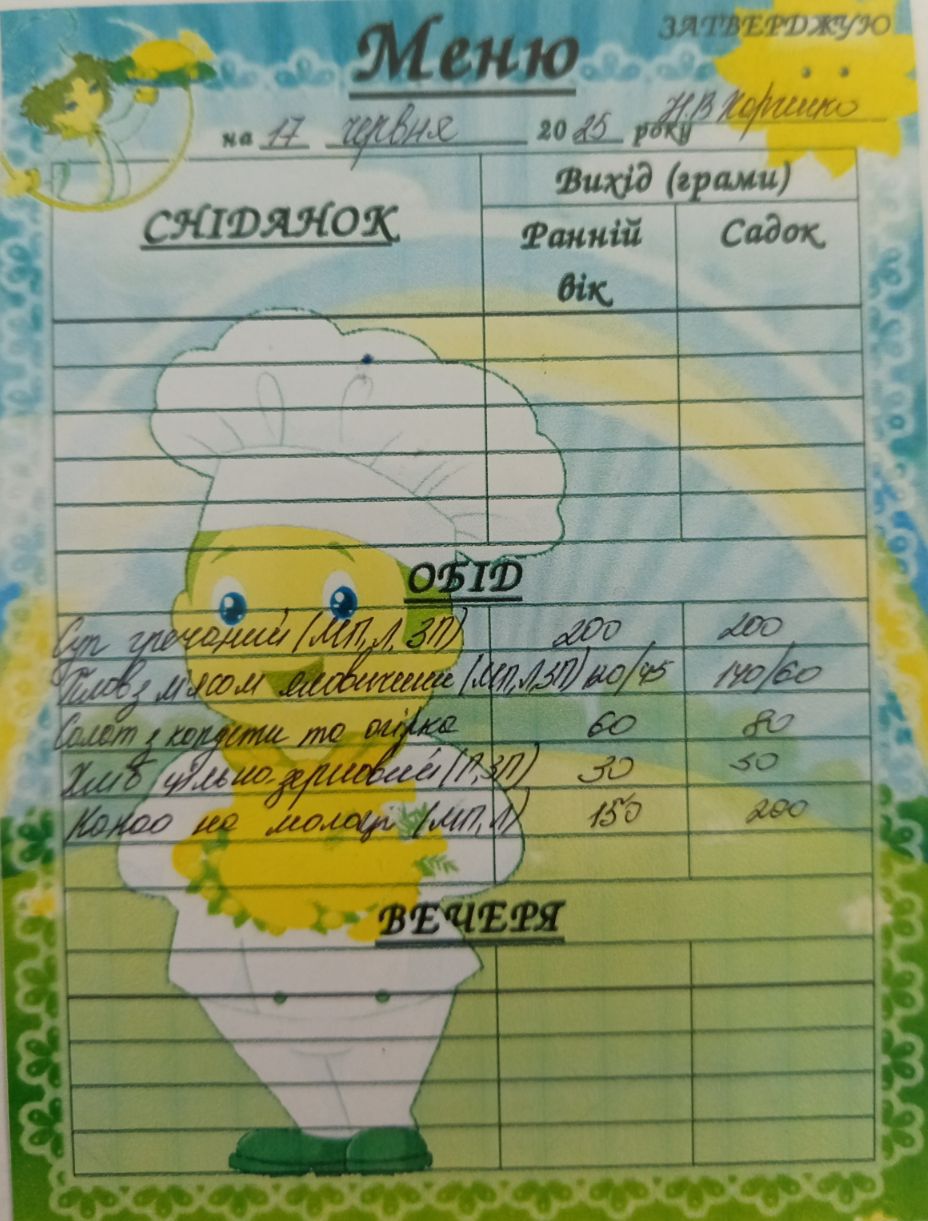 ЗАТВЕРДЖУЮ
Меню
Н.В
на 17 червня 2025 року
СНІДАНОК
Вихід (грами)
Ранній вік
Садок
ОБІД
Суп гречаний (МП, Л, ЗП) 200 200
Плов з м'ясом яловичини (МП,Л,ЗП) 120/45 140/60
Салат з капусти та огірка 60 80
Хліб цільно-зерновий (Г,ЗП) 30 50
Какао на молоці (МП, Л) 150 200
ВЕЧЕРЯ